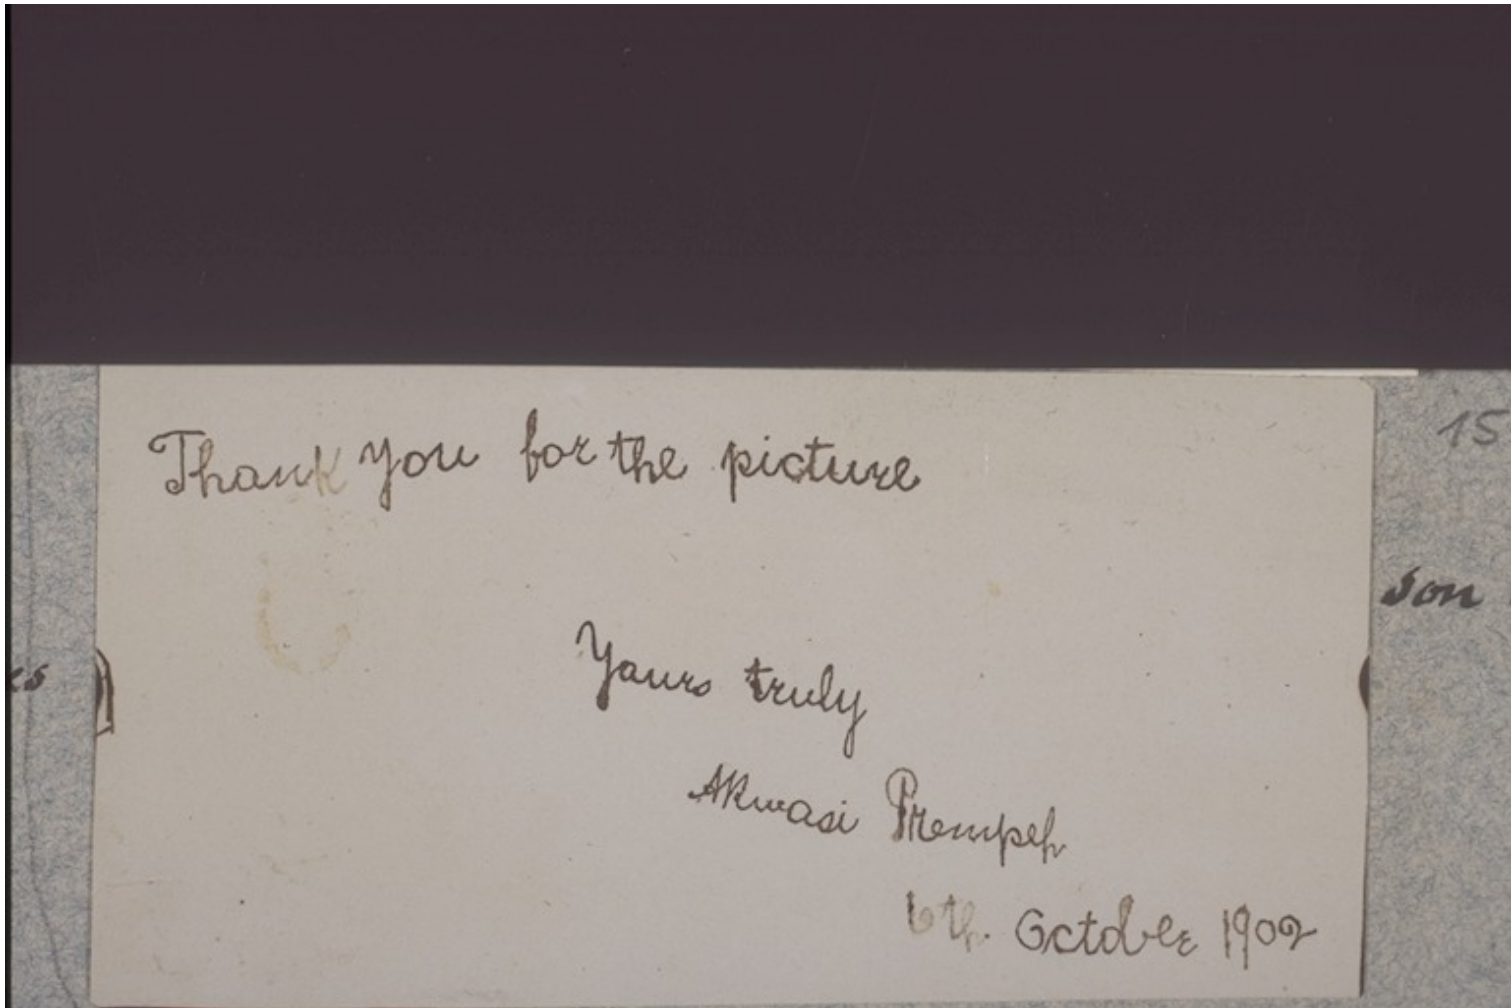 Thank you for the picture
Yours truly
Akwasi Prempeh
6th October 1902
15
son
es